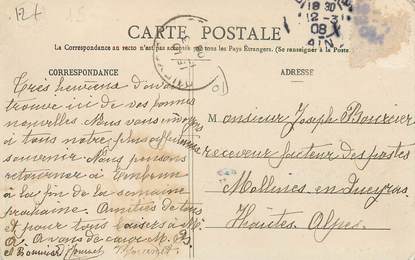 12f
18 30
12-3
08
AIN
CARTE POSTALE
La Correspondance au recto n'est pas acceptée par tous les Pays Étrangers. (Se renseigner à la Poste.)
CORRESPONDANCE
ADRESSE
01
Très heureux d'avoir
trouvé ici de vos bonnes
nouvelles. Nous vous envoyons
à tous notre plus affectueux
souvenir. Nous pensons
retourner à Embrun
à la fin de la semaine
prochaine. Amitiés de tous
et pour tous baisers à
A vous de cœur
Monsieur Joseph Bourrier
receveur facteur des postes
Mollines-en-Queyras
Hautes Alpes